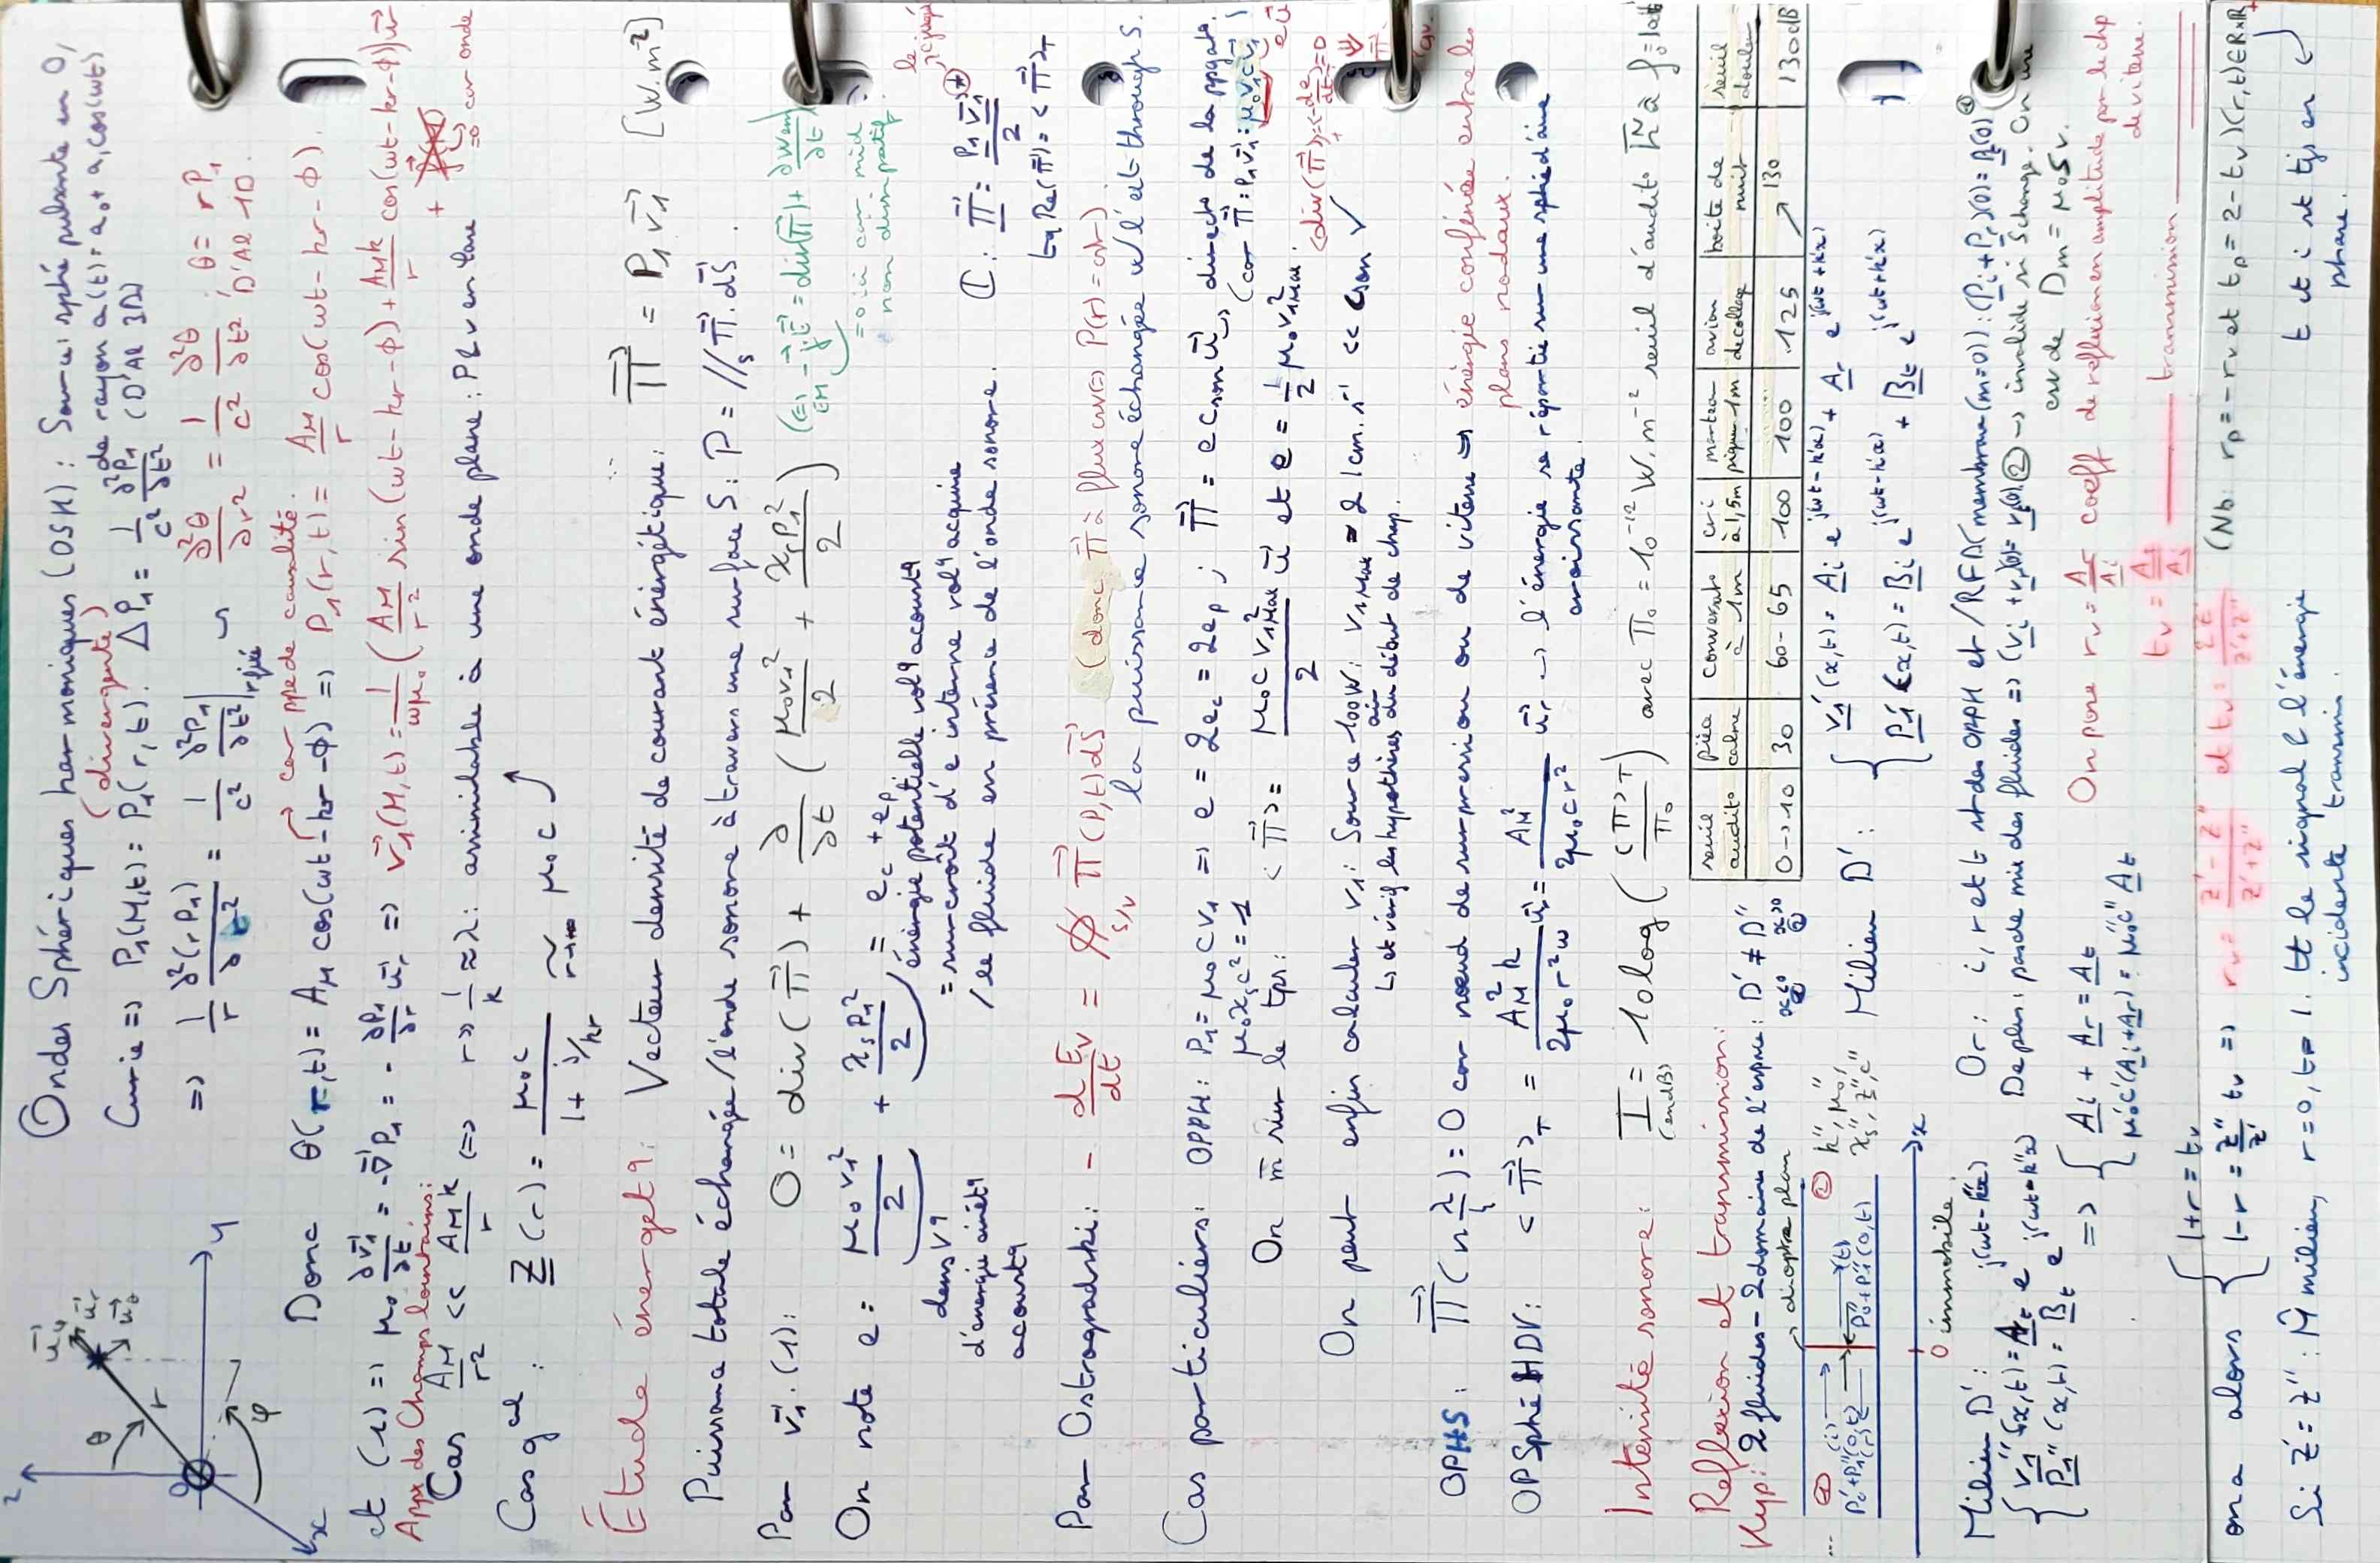 Ondes Sphériques harmoniques (OSH) : Source: sphè pulsante en O,
(divergente)
de rayon a(t) = a₀ + a₁cos(ωt)
Curie => P₁(M,t) = P₁(r,t). ΔP₁ = 1/c² ∂²P₁/∂t² (D'Al 3D)
=> 1/r ∂²(rP₁)/∂r² = 1/c² ∂²P₁/∂t²|r fixé ∂²θ/∂r² = 1/c² ∂²θ/∂t², θ = rP₁
D'Al 1D.
car ppe de causalité.
Donc θ(r,t) = A_M cos(ωt - kr - ϕ) => P₁(r,t) = A_M/r cos(ωt - kr - ϕ).
et (1) => μ₀ ∂v₁/∂t = -∇P₁ = - ∂P₁/∂r u_r => v₁(M,t) = 1/ωμ₀ (A_M/r² sin(ωt - kr - ϕ) + A_M k/r cos(ωt - kr - ϕ)) u_r
=0 car onde
Appx des Champs lointains:
Cas A_M/r² << A_M k/r <=> r >> 1/k ≈ λ : assimilable à une onde plane : P & v en phase
Cas gal : Z(r) = μ₀c / (1 + j/kr) ~ r→∞ μ₀c
Étude énergetq : Vecteur densité de courant énergétique : Π = P₁ v₁ [W.m⁻²]
Puissance totale échangée / l'onde sonore à travers une surface S : P = ∫∫_S Π.dS.
Par v₁.(1) : 0 = div(Π) + ∂/∂t (μ₀v₁²/2 + χ_s P₁²/2)
=0 ici car mid
non dissipatif.
On note e = μ₀v₁²/2 + χ_s P₁²/2 = e_c + e_p
C : Π = P₁ v₁*/2
le conjugé
Re(Π) = <Π>_T
dens v q
d'énergie cinétq
acoustq
énergie potentielle volq acoustq
= surcroît d'e interne volq acquise
/ le fluide en présence de l'onde sonore.
Par Ostrogradski : - dE_V/dt = ∯_S/V Π(P,t)dS (donc Π à flux cv <=> P(r) = cte).
la puissance sonore échangée w/ l'ext through S.
Cas particuliers : OPPH : P₁ = μ₀cv₁ => e = 2e_c = 2e_p ; Π = e c_son u, directo de la ppgato.
μ₀χ_s c² = 1
On m̄ sur le tps : <Π> = μ₀c v₁²Max/2 u et e = 1/2 μ₀v₁²Max
<div(Π)> = <-de/dt> = 0
On peut enfin calculer v₁ : Source 100W : v₁Max ≈ 21 cm.s⁻¹ << c son ✓
↳ et vérif les hypothèses du début de chap.
OPHS : Π(n λ/4) = 0 car noeud de surpression ou de vitesse ↳ énergie confinée entre les
plans nodaux.
OPSphè HDV : <Π>_T = A_M² k/2μ₀r²ω u_r = A_M²/2μ₀cr² u_r → l'énergie se répartie sur une sphè d'aire
croissante.
Intensité sonore : I (en dB) = 10log(<Π>_T/Π₀) avec Π₀ = 10⁻¹² W.m⁻² seuil d'audito
seuil audito | pièce calme | conversato à 1m | cri à 1,5m | marteau piqueur 1m | avion decollage | boite de nuit | seuil douleur
0→10 | 30 | 60-65 | 100 | 100 | 125 | 130 | 130dB
Reflexion et transmission :
Hyp : 2 fluides - 2 domaines de l'espace : D' ≠ D''
x<0 x>0
dioptre plan
0 immobile.
x
Milieu D' : { v₁'(x,t) = A_i e^j(ωt - k'x) + A_r e^j(ωt + k'x)
P₁'(x,t) = B_i e^j(ωt - k'x) + B_r e^j(ωt + k'x)
Milieu D'' : { v₁''(x,t) = A_t e^j(ωt - k''x)
P₁''(x,t) = B_t e^j(ωt - k''x)
Or : i, r et t st des OPPH et /RFD (membrane (m=0)) : (P_i + P_r)(0) = P_t(0)
De plus : pas de mix des fluides => (v_i + v_r)(0) = v_t(0) ② → invalide si S change. On use
cv de D_m = μ₀Sv.
=> { A_i + A_r = A_t
μ₀'c'(A_i + A_r) = μ₀''c'' A_t
On pose r_v = A_r/A_i coeff de reflexion en amplitude par le chp
de vitesse.
t_v = A_t/A_i ——— transmission ———
on a alors { 1+r = t_v
1-r = Z''/Z' t_v => r_v = Z'-Z''/Z'+Z'' et t_v = 2Z'/Z'+Z'' (Nb : r_p = -r_v et t_p = 2 - t_v) (r,t) ∈ R×R⁺
Si Z' = Z'' : m̄ milieu, r = 0, t = 1. tt le signal & l'énergie
incidente transmis.
t et i st tjs en
phase.